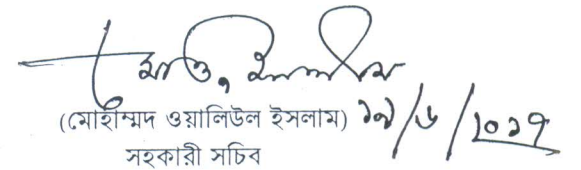 (মোহাম্মদ ওয়ালিউল ইসলাম) ১৯/৬/২০১৭
সহকারী সচিব